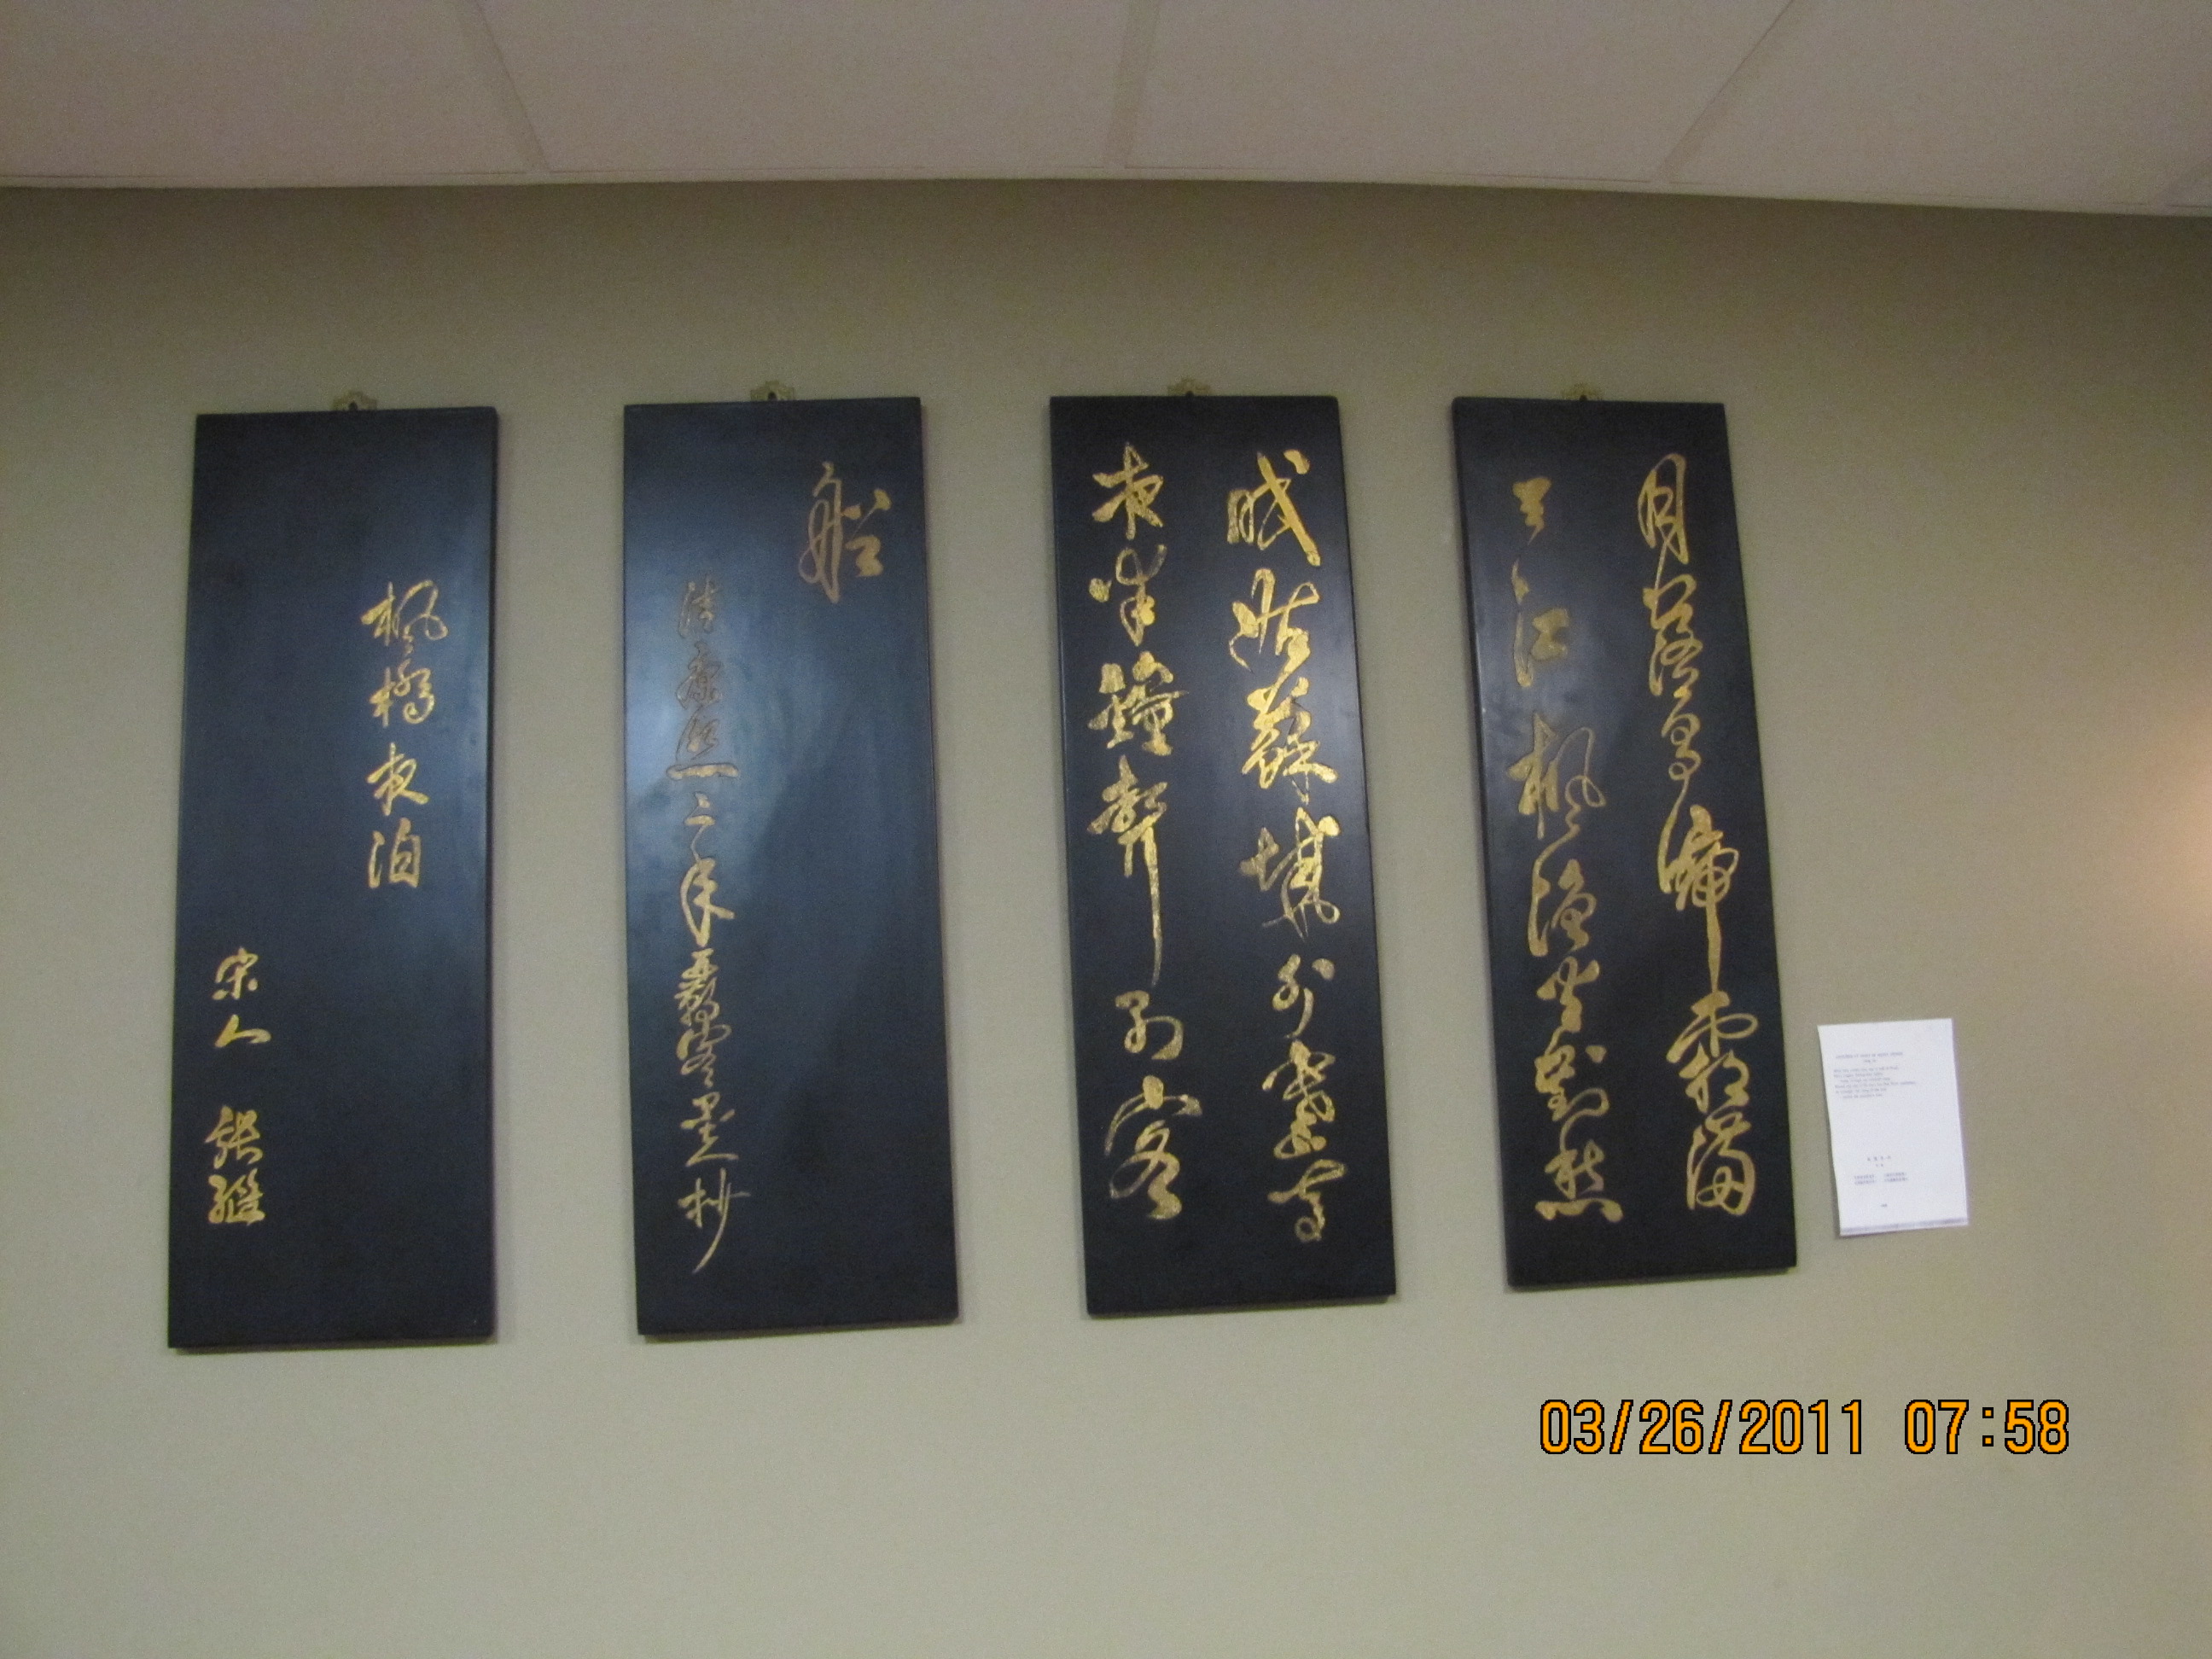 月落烏啼霜滿
天江楓漁火對愁
眠姑蘇城外寒山寺
夜半鐘聲到客
船
清康熙二年抄
楓橋夜泊
宋人 張繼
03/26/2011 07:58